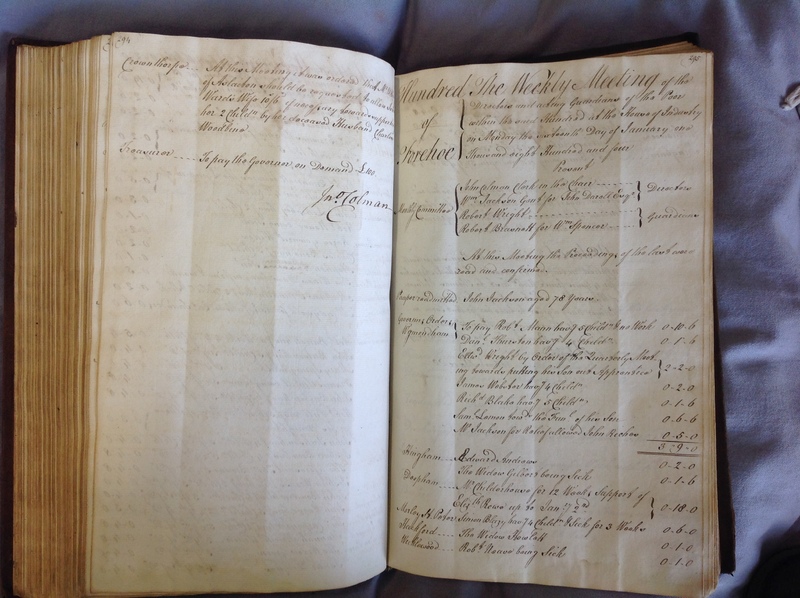 294
Crownthorpe At this Meeting it was ordered that Mr
of Aslacton should be requested to allow
Wards Wife 10/6 if necessary towards support
her 2 Childn by her deceased Husband Charles
Woodrina
Treasurer To pay the Governor on Demand £
Jno. Colman
295
Hundred of Forehoe
The Weekly Meeting of the
Directors and acting Guardians of the Poor
within the said Hundred at the House of Industry
on Monday the sixteenth Day of January one
Thousand eight Hundred and four
Present
Weekly Committee
John Colman Clerk in the Chair
Wm. Jackson Gent for John Esqr.
Directors
Robert Wright
Robert Brownell for Wm. Spencer
Guardians
At this Meeting the Proceedings of the last were
read and confirmed.
Pauper readmitted John Jackson aged 78 Years
Governors Orders
Wymondham
To pay Robt. Mann havg. 5 Childn. & no Work 0-10-6
Danl. Thurston havg. 4 Childn. 0-1-6
Edwd. Wright by Order of the Quarterly Meet
ing towards putting his Son out Apprentice 2-2-0
James Webster havg. 4 Childn. 0-2-0
Richd. Blake havg. 5 Childn. 0-1-6
Saml. Lemon towds. the Funl. of his Son 0-6-6
Mr. Jackson for Relief allowed John 0-5-0
3-9-0
Hingham Edward Andrews 0-2-0
The Widow Gilbert being Sick 0-1-6
Deopham Mr. Childerhouse for 12 Weeks Support of
Elizth. Rowe up to Jany. 2d 0-18-0
Morley St. Peter Simon havg. 4 Childn. & Sick for 3 Weeks 0-6-0
Hackford The Widow Howlett 0-1-0
Wicklewood Robt. being Sick 0-1-0